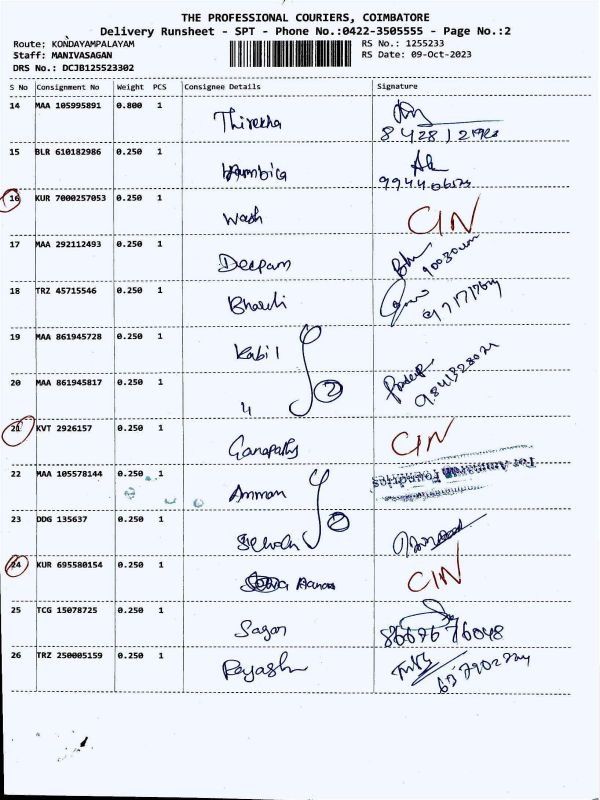 THE PROFESSIONAL COURIERS, COIMBATORE
Delivery Runsheet - SPT - Phone No.:0422-3505555 - Page No.:2
Route: KONDAYAMPALAYAM RS No.: 1255233
Staff: MANIVASAGAN RS Date: 09-Oct-2023
DRS No.: DCJB125523302
S No Consignment No Weight PCS Consignee Details Signature
14 MAA 105995891 0.800 1 Thirekha
15 BLR 610182986 0.250 1
16 KUR 7000257053 0.250 1 Wash CIN
17 MAA 292112493 0.250 1 Deepam
18 TRZ 45715546 0.250 1 Bharathi
19 MAA 861945728 0.250 1 Kabil
20 MAA 861945817 0.250 1 4 2 Pradeep
21 KVT 2926157 0.250 1 Ganapathy CIN
22 MAA 105578144 0.250 1 Amman For Ammarun Foundries
23 DDG 135637 0.250 1 2
24 KUR 695580154 0.250 1 CIN
25 TCG 15078725 0.250 1 Sagar 8669676048
26 TRZ 250005159 0.250 1